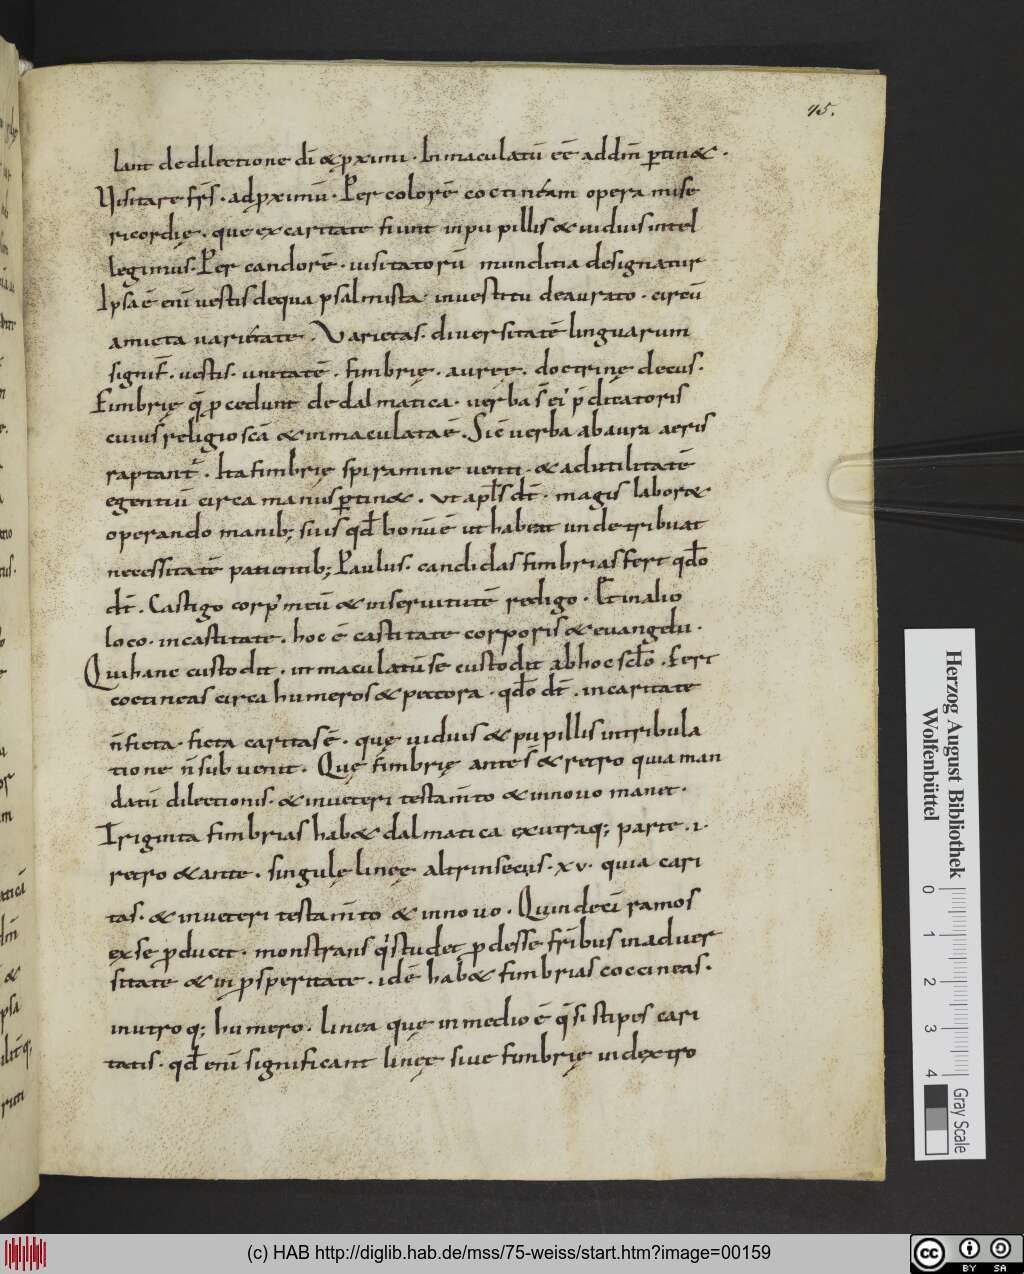 75.
lant de dilectione dī & ꝓximi · Inmaculatū eē ad dm̄ ꝑtin& ·
Uisitare fr̄s · ad ꝓximū · Per colorē coctineam opera mise
ricordię · que ex caritate fiunt in pupillis & uiduis intel
legimus · Per candorē · uisitatorū munditia designatur
Ipsa ē enī uestis de qua psalmista in uestitu deaurato · circū
amicta uarietate · Varietas · diuersitatē linguarum
signif̄ · uestis · unitatē · fimbrię · auręę · doctrinę decus ·
Fimbrię q̄ ꝓcedunt de dalmatica · uerba s̄ ei' p̄dicatoris
cuius religio scā & inmaculata ē · Sic̄ uerba ab aura aeris
raptant' · Ita fimbrię spiramine uenti · & ad utilitatē
egentiū circa manus ꝑtin& · ut apl̄s dt̄ · magis labor&
operando manib; suis qd̄ bonū ē ut habeat unde tribuat
necessitatē patientib; Paulus · candidas fimbrias fert qd̄o
dt̄ · Castigo corp' meū & in seruitutē redigo · Et in alio
loco · in castitate · hoc ē castitate corporis & euangelii ·
Qui hanc custodit · inmaculatū se custodit ab hoc sc̄lo · Fert
coctineas circa humeros & pectora · qd̄o dt̄ · in caritate
n̄ ficta · ficta caritas ē · quę uiduis & pupillis in tribula
tione n̄ subuenit · Quę fimbrię ante s̄ & retro quia man
datū dilectionis · & in ueteri testam̄to & in nouo manet ·
Triginta fimbrias hab& dalmatica ex utraq; parte · i ·
retro & ante · singulę linęę altrinsecus · xv · quia cari
tas · & in ueteri testam̄to & in nouo · Quindecī ramos
ex se ꝓducit · monstrans q' studet ꝓdesse fr̄ibus in aduer
sitate & in ꝓsperitate · idē hab& fimbrias coccineas ·
in utroq; humero · linea quę in medio ē q̄si stipes cari
tatis · qd̄ enī significant linęę siue fimbrię in dextro
Herzog August Bibliothek
Wolfenbüttel
0 1 2 3 4
Gray Scale
(c) HAB http://diglib.hab.de/mss/75-weiss/start.htm?image=00159
cc BY SA